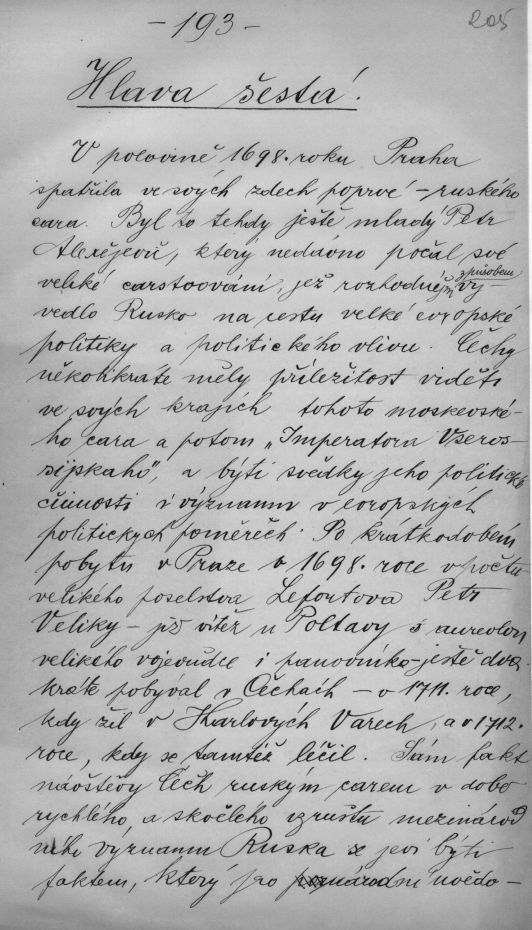 - 193 -
205
Hlava šestá.
V polovině 1698. roku Praha
spatřila ve svých zdech poprvé – ruského
cara. Byl to tehdy ještě mladý Petr
Alexějevič, který nedávno počal své
veliké carstvování, jež rozhodným způsobem vy-
vedlo Rusko na cestu velké evropské
politiky a politického vlivu. Čechy
několikráte měly příležitost viděti
ve svých krajích tohoto moskevské-
ho cara a potom „Imperatora Vseros-
sijskaho", a býti svědky jeho politické
činnosti i významu v evropských
politických poměrech. Po krátkodobém
pobytu v Praze v 1698. roce v počtu
velikého poselstva Lefortova Petr
Veliký – již vítěz u Poltavy s aureolou
velikého vojevůdce i panovníka – ještě dva-
kráte pobýval v Čechách – v 1711. roce,
kdy žil v Karlových Varech, a v 1712.
roce, kdy se tamtéž léčil. Sám fakt
návštěvy Čech ruským carem v době
rychlého, a skvělého vzrůstu mezinárod
ního významu Ruska se jeví býti
faktem, který pro národní uvědo-